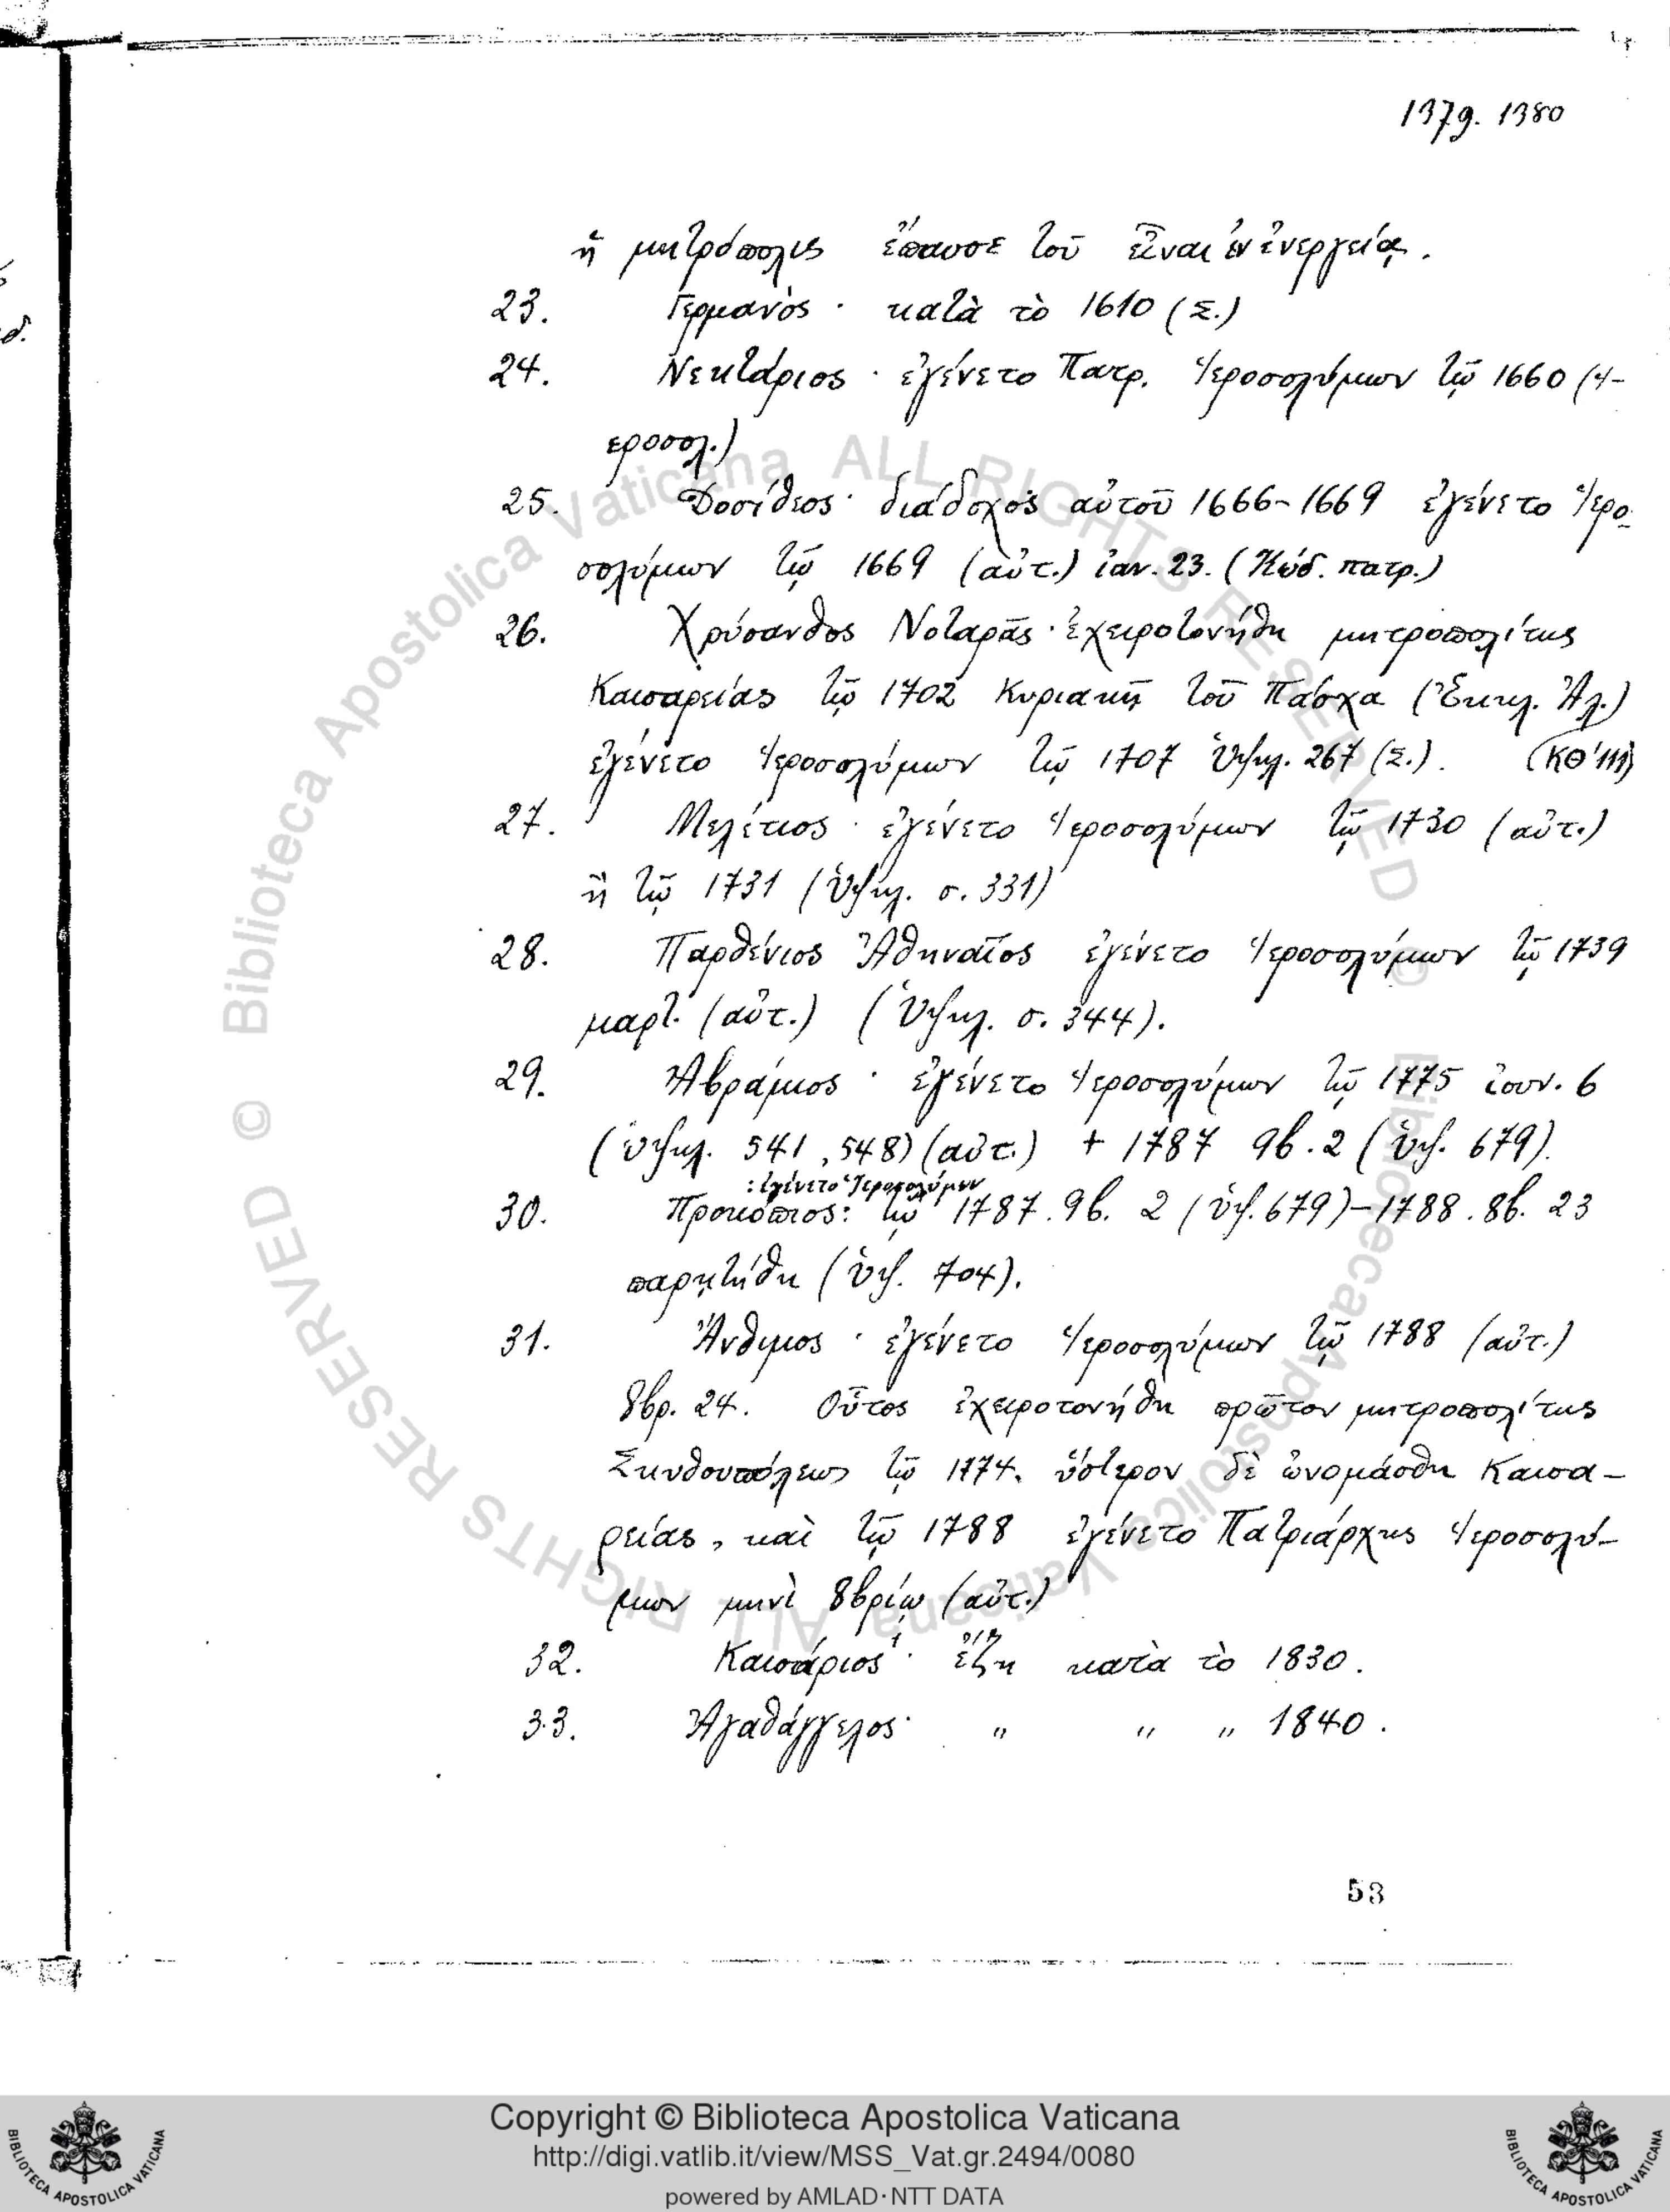 1379. 1380
ἡ μητρόπολις ἔπαυσε τοῦ εἶναι ἐν ἐνεργείᾳ.
23. Γερμανὸς · κατὰ τὸ 1610 (Σ.)
24. Νεκτάριος · ἐγένετο Πατρ. Ἱεροσολύμων τῷ 1660 (Ἱ-
εροσολ.)
25. Δοσίθεος · διάδοχος αὐτοῦ 1666-1669 ἐγένετο Ἱερο-
σολύμων τῷ 1669 (αὐτ.) ἰαν. 23. (Κώδ. πατρ.)
26. Χρύσανθος Νοταρᾶς · ἐχειροτονήθη μητροπολίτης
Καισαρείας τῷ 1702 Κυριακῇ τοῦ Πάσχα (Ἐκκλ. Ἀλ.)
ἐγένετο Ἱεροσολύμων τῷ 1707 Ὑψηλ. 267 (Σ.). (ΚΘ' 111)
27. Μελέτιος · ἐγένετο Ἱεροσολύμων τῷ 1730 (αὐτ.)
ἢ τῷ 1731 (Ὑψηλ. σ. 331)
28. Παρθένιος Ἀθηναῖος ἐγένετο Ἱεροσολύμων τῷ 1739
μαρτ. (αὐτ.) (Ὑψηλ. σ. 344).
29. Ἀβράμιος · ἐγένετο Ἱεροσολύμων τῷ 1775 ἰουν. 6
(ὑψηλ. 541, 548) (αὐτ.) + 1787 9β. 2 (ὑψ. 679).
: ἐγένετο Ἱεροσολύμων
30. Προκόπιος: τῷ 1787. 9β. 2 (ὑψ. 679) – 1788. 8β. 23
παρῃτήθη (ὑψ. 704).
31. Ἄνθιμος · ἐγένετο Ἱεροσολύμων τῷ 1788 (αὐτ.)
8βρ. 24. Οὗτος ἐχειροτονήθη πρῶτον μητροπολίτης
Σκυθουπόλεως τῷ 1774. ὕστερον δὲ ὠνομάσθη Καισα-
ρείας, καὶ τῷ 1788 ἐγένετο Πατριάρχης Ἱεροσολύ-
μων μηνὶ 8βρίῳ (αὐτ.)
32. Καισάριος · ἔζη κατὰ τὸ 1830.
33. Ἀγαθάγγελος · " " " 1840.
53
© Biblioteca Apostolica Vaticana ALL RIGHTS RESERVED
© Biblioteca Apostolica Vaticana ALL RIGHTS RESERVED
Copyright © Biblioteca Apostolica Vaticana
http://digi.vatlib.it/view/MSS_Vat.gr.2494/0080
powered by AMLAD·NTT DATA
BIBLIOTECA APOSTOLICA VATICANA
BIBLIOTECA APOSTOLICA VATICANA